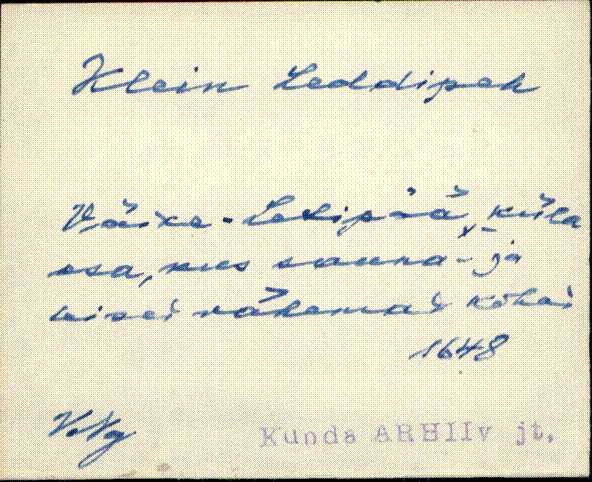 Klein Leddipeh
Väike-Ledipää, küla
osa, kus sauna- ja
väkemad kohad
1648
V.Ng
Kunda ARHIIv jt.